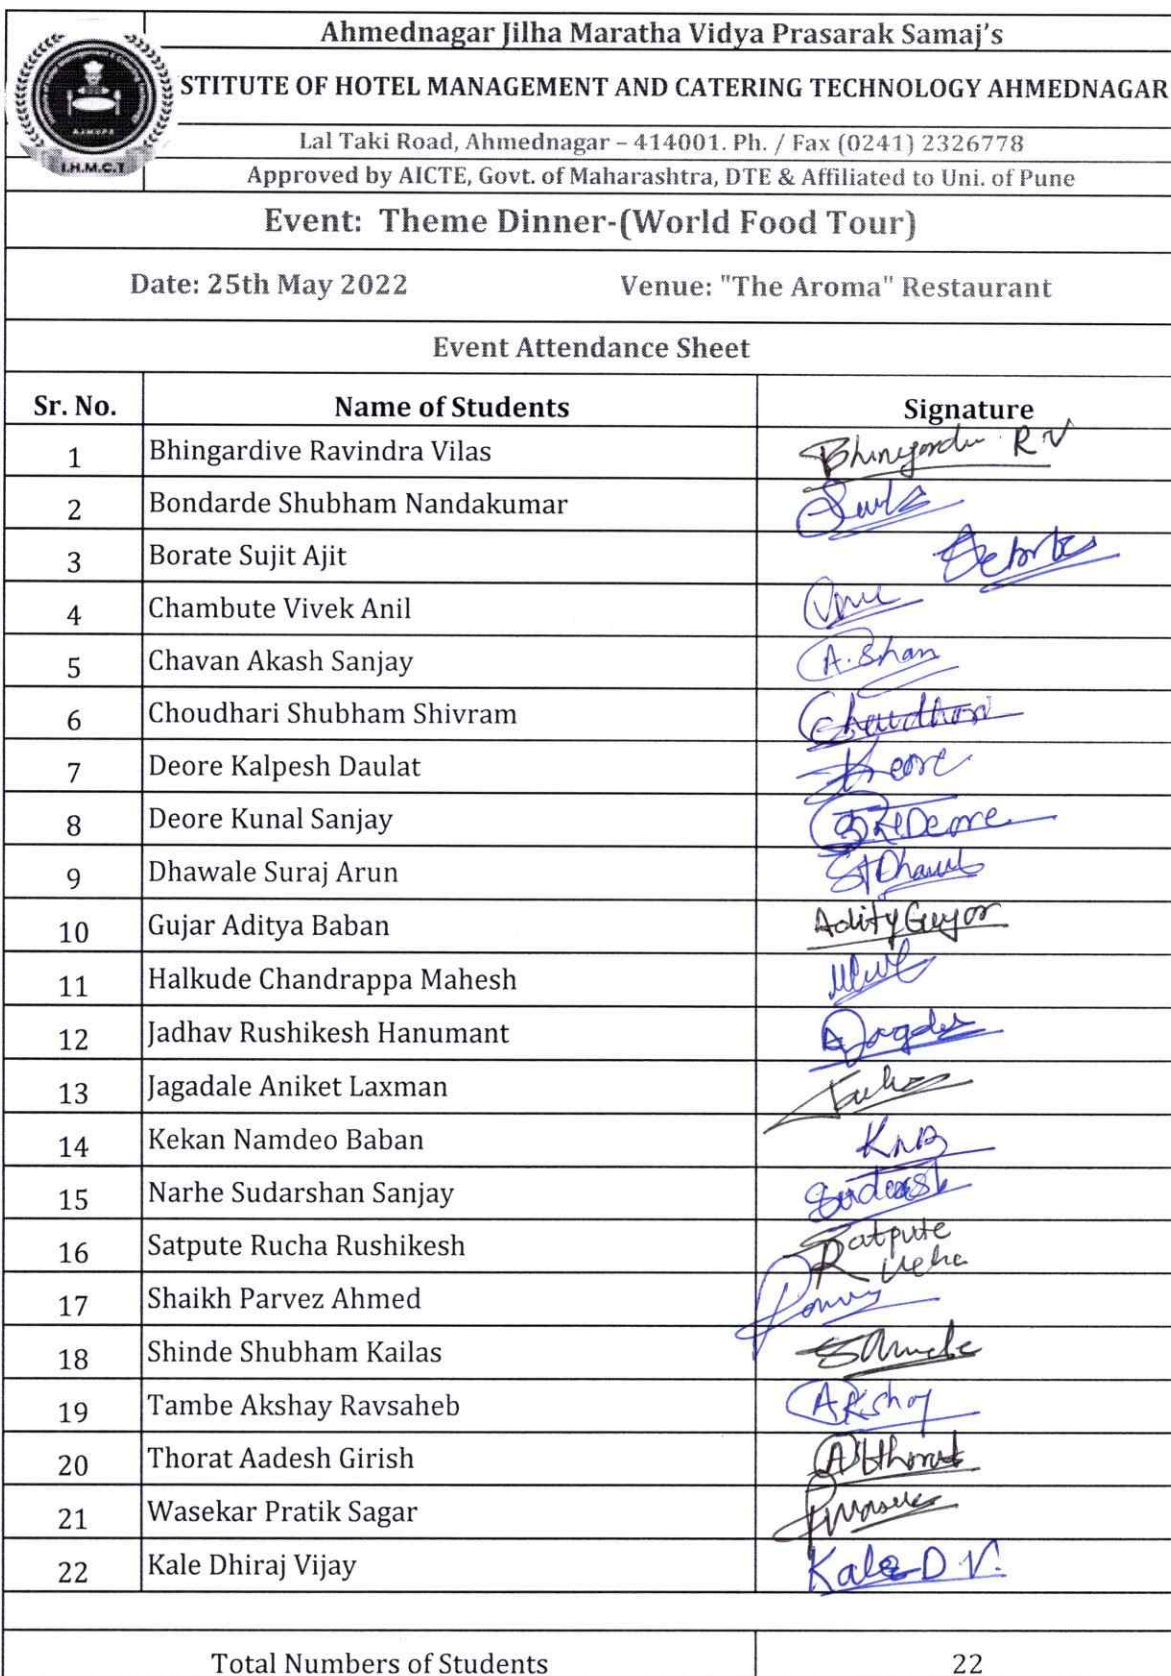 Ahmednagar Jilha Maratha Vidya Prasarak Samaj's
STITUTE OF HOTEL MANAGEMENT AND CATERING TECHNOLOGY AHMEDNAGAR
Lal Taki Road, Ahmednagar – 414001. Ph. / Fax (0241) 2326778
I.H.M.C.T
Approved by AICTE, Govt. of Maharashtra, DTE & Affiliated to Uni. of Pune
Event: Theme Dinner-(World Food Tour)
Date: 25th May 2022 Venue: "The Aroma" Restaurant
Event Attendance Sheet
Sr. No. Name of Students Signature
1 Bhingardive Ravindra Vilas R V
2 Bondarde Shubham Nandakumar
3 Borate Sujit Ajit
4 Chambute Vivek Anil
5 Chavan Akash Sanjay
6 Choudhari Shubham Shivram
7 Deore Kalpesh Daulat
8 Deore Kunal Sanjay Deore
9 Dhawale Suraj Arun
10 Gujar Aditya Baban
11 Halkude Chandrappa Mahesh
12 Jadhav Rushikesh Hanumant
13 Jagadale Aniket Laxman
14 Kekan Namdeo Baban KNB
15 Narhe Sudarshan Sanjay
16 Satpute Rucha Rushikesh Satpute
17 Shaikh Parvez Ahmed
18 Shinde Shubham Kailas
19 Tambe Akshay Ravsaheb Akshay
20 Thorat Aadesh Girish
21 Wasekar Pratik Sagar
22 Kale Dhiraj Vijay Kale D V.
Total Numbers of Students 22